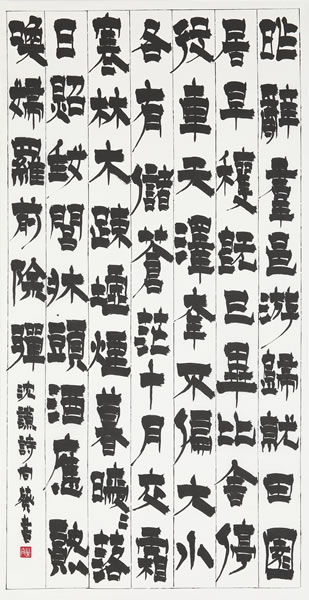 昨辭羣邑游歸就田園
居早穫既已畢比舍停
徒車天澤奉不偏大小
各有儲蒼茫十月交霜
寒林木疎墟煙暮曖々落
日照閭牀頭酒應熟
喚婦羅前除彈
沈謙詩向書